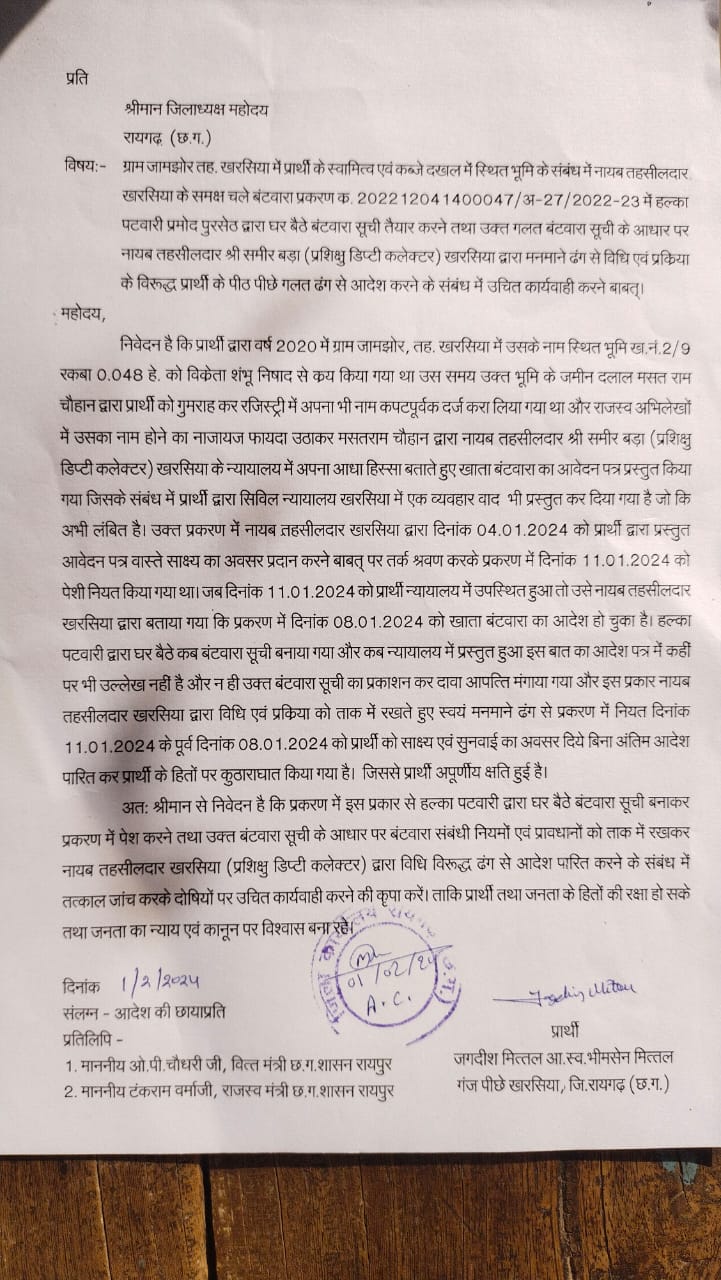 प्रति
श्रीमान जिलाध्यक्ष महोदय
रायगढ़ (छ.ग.)
विषय:- ग्राम जामझोर तह. खरसिया में प्रार्थी के स्वामित्व एवं कब्जे दखल में स्थित भूमि के संबंध में नायब तहसीलदार
खरसिया के समक्ष चले बंटवारा प्रकरण क. 202212041400047/अ-27/2022-23 में हल्का
पटवारी प्रमोद पुरसेठ द्वारा घर बैठे बंटवारा सूची तैयार करने तथा उक्त गलत बंटवारा सूची के आधार पर
नायब तहसीलदार श्री समीर बड़ा (प्रशिक्षु डिप्टी कलेक्टर) खरसिया द्वारा मनमाने ढंग से विधि एवं प्रकिया
के विरूद्ध प्रार्थी के पीठ पीछे गलत ढंग से आदेश करने के संबंध में उचित कार्यवाही करने बाबत्।
महोदय,
निवेदन है कि प्रार्थी द्वारा वर्ष 2020 में ग्राम जामझोर, तह. खरसिया में उसके नाम स्थित भूमि ख.नं.2/9
रकबा 0.048 हे. को विकेता शंभू निषाद से कय किया गया था उस समय उक्त भूमि के जमीन दलाल मसत राम
चौहान द्वारा प्रार्थी को गुमराह कर रजिस्ट्री में अपना भी नाम कपटपूर्वक दर्ज करा लिया गया था और राजस्व अभिलेखों
में उसका नाम होने का नाजायज फायदा उठाकर मसतराम चौहान द्वारा नायब तहसीलदार श्री समीर बड़ा (प्रशिक्षु
डिप्टी कलेक्टर) खरसिया के न्यायालय में अपना आधा हिस्सा बताते हुए खाता बंटवारा का आवेदन पत्र प्रस्तुत किया
गया जिसके संबंध में प्रार्थी द्वारा सिविल न्यायालय खरसिया में एक व्यवहार वाद भी प्रस्तुत कर दिया गया है जो कि
अभी लंबित है। उक्त प्रकरण में नायब तहसीलदार खरसिया द्वारा दिनांक 04.01.2024 को प्रार्थी द्वारा प्रस्तुत
आवेदन पत्र वास्ते साक्ष्य का अवसर प्रदान करने बाबत् पर तर्क श्रवण करके प्रकरण में दिनांक 11.01.2024 को
पेशी नियत किया गया था। जब दिनांक 11.01.2024 को प्रार्थी न्यायालय में उपस्थित हुआ तो उसे नायब तहसीलदार
खरसिया द्वारा बताया गया कि प्रकरण में दिनांक 08.01.2024 को खाता बंटवारा का आदेश हो चुका है। हल्का
पटवारी द्वारा घर बैठे कब बंटवारा सूची बनाया गया और कब न्यायालय में प्रस्तुत हुआ इस बात का आदेश पत्र में कहीं
पर भी उल्लेख नहीं है और न ही उक्त बंटवारा सूची का प्रकाशन कर दावा आपत्ति मंगाया गया और इस प्रकार नायब
तहसीलदार खरसिया द्वारा विधि एवं प्रकिया को ताक में रखते हुए स्वयं मनमाने ढंग से प्रकरण में नियत दिनांक
11.01.2024 के पूर्व दिनांक 08.01.2024 को प्रार्थी को साक्ष्य एवं सुनवाई का अवसर दिये बिना अंतिम आदेश
पारित कर प्रार्थी के हितों पर कुठाराघात किया गया है। जिससे प्रार्थी अपूर्णीय क्षति हुई है।
अत: श्रीमान से निवेदन है कि प्रकरण में इस प्रकार से हल्का पटवारी द्वारा घर बैठे बंटवारा सूची बनाकर
प्रकरण में पेश करने तथा उक्त बंटवारा सूची के आधार पर बंटवारा संबंधी नियमों एवं प्रावधानों को ताक में रखाकर
नायब तहसीलदार खरसिया (प्रशिक्षु डिप्टी कलेक्टर) द्वारा विधि विरूद्ध ढंग से आदेश पारित करने के संबंध में
तत्काल जांच करके दोषियों पर उचित कार्यवाही करने की कृपा करें। ताकि प्रार्थी तथा जनता के हितों की रक्षा हो सके
तथा जनता का न्याय एवं कानून पर विश्वास बना रहे।
कार्यालय रायगढ़ (छ.ग.)
01/02/24
A.C.
दिनांक 1/2/2024
संलग्न - आदेश की छायाप्रति
प्रतिलिपि -
1. माननीय ओ.पी.चौधरी जी, वित्त मंत्री छ.ग.शासन रायपुर
2. माननीय टंकराम वर्माजी, राजस्व मंत्री छ.ग.शासन रायपुर
प्रार्थी
जगदीश मित्तल आ.स्व.भीमसेन मित्तल
गंज पीछे खरसिया, जि.रायगढ़ (छ.ग.)